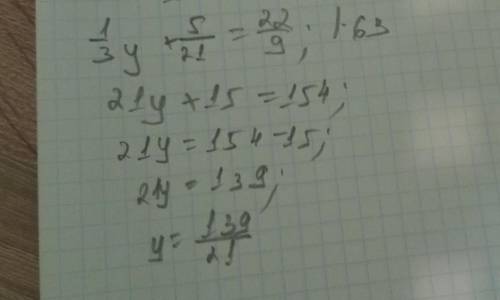 1/3 y + 5/21 = 22/9; | · 63
21y + 15 = 154;
21y = 154 - 15;
21y = 139;
y = 139/21